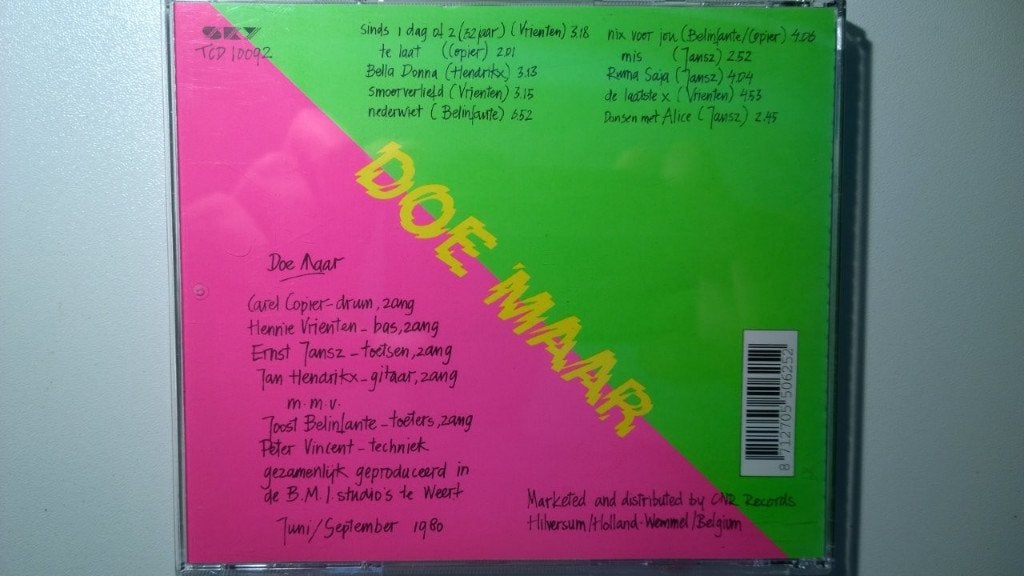 SKY
TCD 10092
sinds 1 dag of 2 (32 jaar) (Vrienten) 3.18
te laat (Copier) 2.01
Bella Donna (Hendrikx) 3.13
smoorverliefd (Vrienten) 3.15
nederwiet (Belinfante) 6.52
nix voor jou (Belinfante/Copier) 4.06
mis (Jansz) 2.52
Ruma Saja (Jansz) 4.04
de laatste x (Vrienten) 4.53
Dansen met Alice (Jansz) 2.45
DOE MAAR
Doe Maar
Carel Copier - drum, zang
Hennie Vrienten - bas, zang
Ernst Jansz - toetsen, zang
Jan Hendrikx - gitaar, zang
m.m.v.
Joost Belinfante - toeters, zang
Peter Vincent - techniek
gezamenlijk geproduceerd in
de B.M.I. studio's te Weert
Juni/September 1980
8 712705 506252
Marketed and distributed by CNR Records
Hilversum/Holland - Wemmel/Belgium